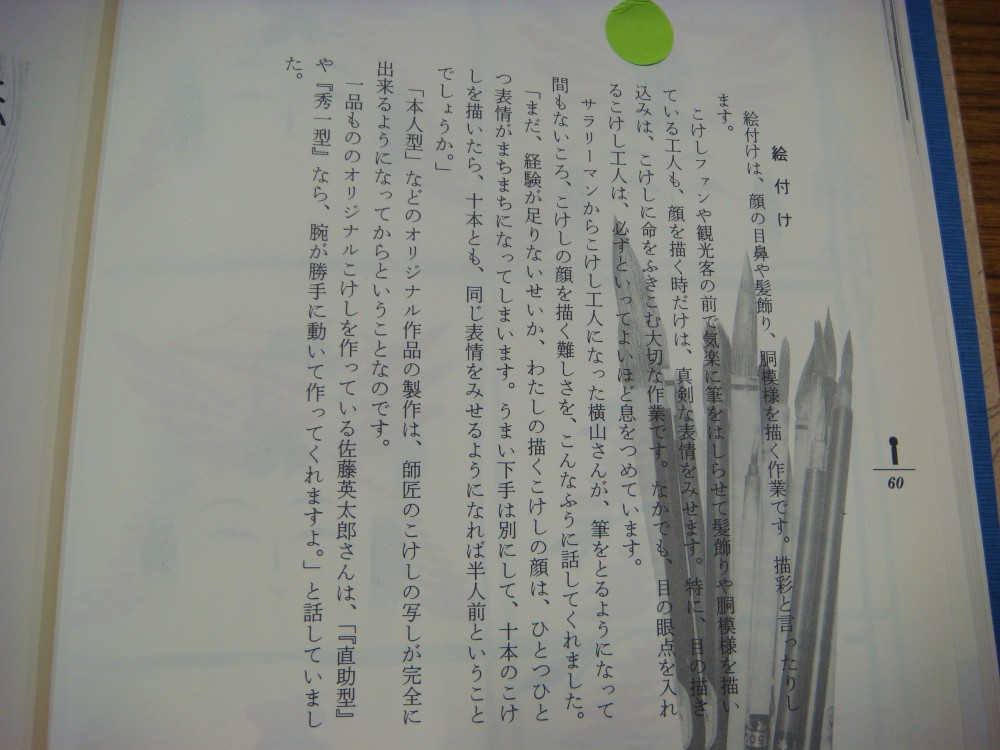 絵付け
絵付けは、顔の目鼻や髪飾り、胴模様を描く作業です。描彩と言ったりし
ます。
こけしファンや観光客の前で気楽に筆をはしらせて髪飾りや胴模様を描い
ている工人も、顔を描く時だけは、真剣な表情をみせます。特に、目の描き
込みは、こけしに命をふきこむ大切な作業です。なかでも、目の眼点を入れ
るこけし工人は、必ずといってよいほど息をつめています。
サラリーマンからこけし工人になった横山さんが、筆をとるようになって
間もないころ、こけしの顔を描く難しさを、こんなふうに話してくれました。
「まだ、経験が足りないせいか、わたしの描くこけしの顔は、ひとつひと
つ表情がまちまちになってしまいます。うまい下手は別にして、十本のこけ
しを描いたら、十本とも、同じ表情をみせるようになれば半人前ということ
でしょうか。」
「本人型」などのオリジナル作品の製作は、師匠のこけしの写しが完全に
出来るようになってからということなのです。
一品もののオリジナルこけしを作っている佐藤英太郎さんは、「『直助型』
や『秀一型』なら、腕が勝手に動いて作ってくれますよ。」と話していまし
た。
60